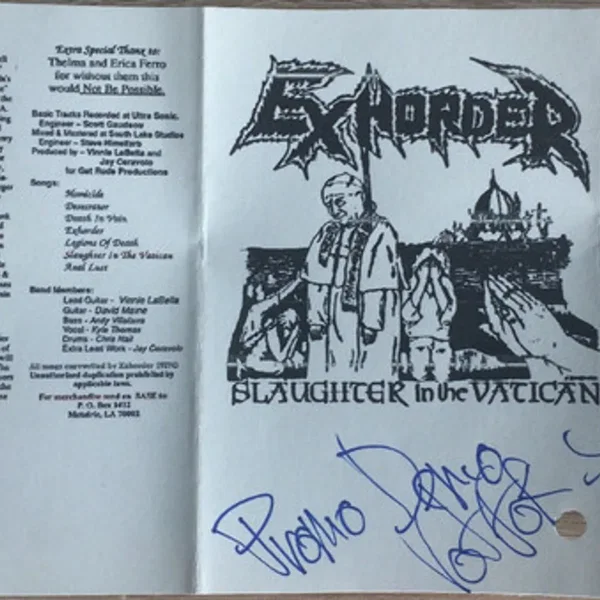 Extra Special Thanx to:
Thelma and Erica Ferro
for without them this
would Not Be Possible.
Basic Tracks Recorded at Ultra Sonic.
Engineer - Scott Gaudson
Mixed & Mastered at South Lake Studios
Engineer - Steve Himelfarb
Produced by - Vinnie LaBella and
Jay Ceravolo
for Get Rude Productions
Songs:
Homicide
Desecrator
Death In Vain
Exhorder
Legions Of Death
Slaughter In The Vatican
Anal Lust
Band Members:
Lead Guitar - Vinnie LaBella
Guitar - David Maine
Bass - Andy Villafarra
Vocal - Kyle Thomas
Drums - Chris Nail
Extra Lead Work - Jay Ceravolo
All songs copywrited by Exhorder
Unauthorized duplication prohibited by
applicable laws.
For merchandise send an SASE to
P. O. Box
Metairie, LA 70002
EXHORDER
SLAUGHTER in the VATICAN
Promo Demo